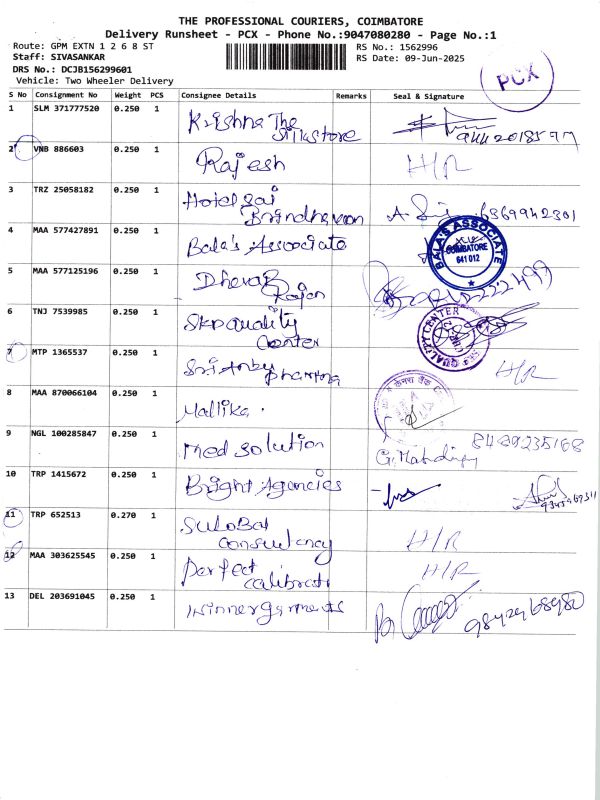 THE PROFESSIONAL COURIERS, COIMBATORE
Delivery Runsheet - PCX - Phone No.:9047080280 - Page No.:1
Route: GPM EXTN 1 2 6 8 ST
RS No.: 1562996
Staff: SIVASANKAR
RS Date: 09-Jun-2025
DRS No.: DCJB156299601
Vehicle: Two Wheeler Delivery
PCX
S No Consignment No Weight PCS Consignee Details Remarks Seal & Signature
1 SLM 371777520 0.250 1 Krishna The
Silkstore
2 VNB 886603 0.250 1 Rajesh H/R
3 TRZ 25058182 0.250 1 Hotel Sai
Brindhavan 6369942301
4 MAA 577427891 0.250 1 Bala's Associate
BALA'S ASSOCIATE
COIMBATORE
641 012
5 MAA 577125196 0.250 1
Rajan
6 TNJ 7539985 0.250 1 SKP Quality
Center
QUALITY CENTER
7 MTP 1365537 0.250 1 H/R
8 MAA 870066104 0.250 1 Mallika.
केनरा बैंक
9 NGL 100285847 0.250 1 Med Solution 8489235168
10 TRP 1415672 0.250 1 Bright Agencies
11 TRP 652513 0.270 1
Consultancy H/R
12 MAA 303625545 0.250 1 Perfect
H/R
13 DEL 203691045 0.250 1 Winner garments 9842968980